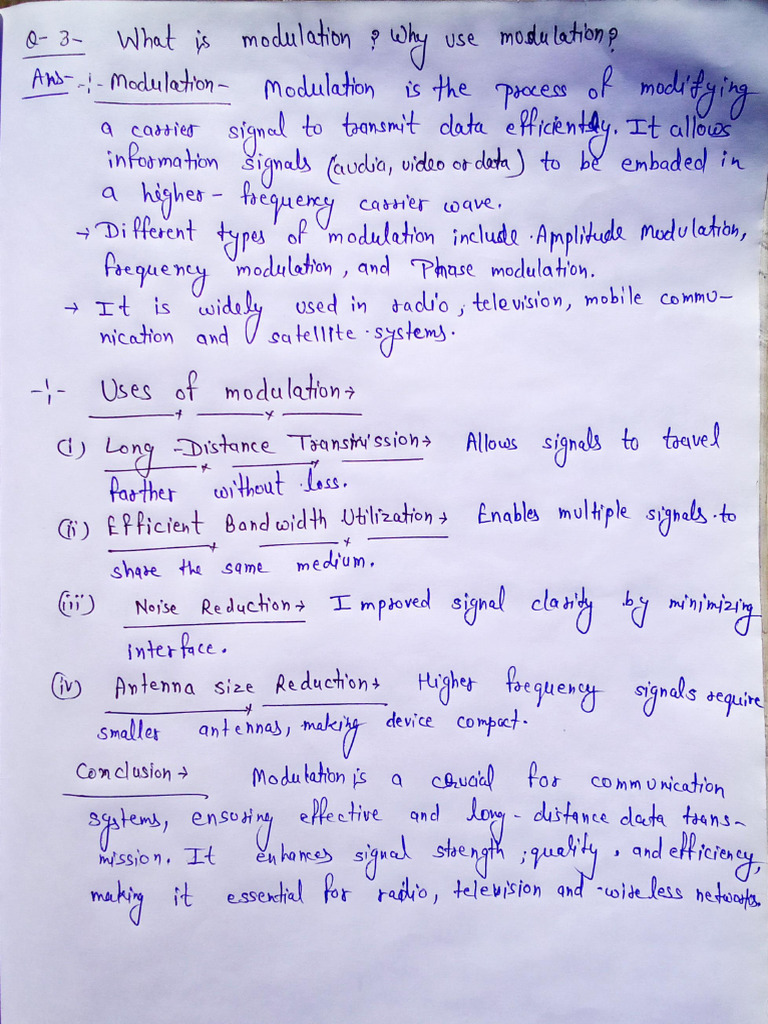 Q-3- What is modulation? Why use modulation?
Ans- -:- Modulation - Modulation is the process of modifying
a carrier signal to transmit data efficiently. It allows
information signals (audia, video or data) to be embaded in
a higher-frequency carrier wave.
→ Different types of modulation include Amplitude Modulation,
frequency modulation, and Phase modulation.
→ It is widely used in radio, television, mobile commu-
nication and satellite systems.
-:- Uses of modulation→
(i) Long-Distance Transmission→ Allows signals to travel
farther without loss.
(ii) Efficient Bandwidth Utilization→ Enables multiple signals to
share the same medium.
(iii) Noise Reduction→ Improved signal clarity by minimizing
interface.
(iv) Antenna size Reduction→ Higher frequency signals require
smaller antennas, making device compact.
Conclusion→ Modulation is a crucial for communication
systems, ensuring effective and long-distance data trans-
mission. It enhances signal strength, quality, and efficiency,
making it essential for radio, television and wireless networks.